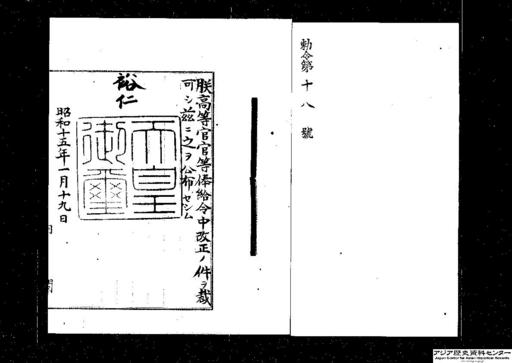 勅令第十八號
朕高等官官等俸給令中改正ノ件ヲ裁
可シ茲ニ之ヲ公布セシム
裕仁
天皇御璽
昭和十五年一月十九日
アジア歴史資料センター
Japan Center for Asian Historical Records